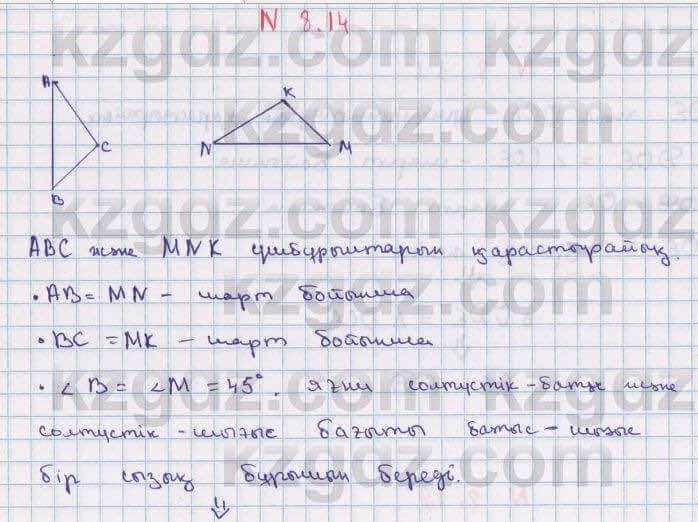 N 8.14
A
K
C
N
M
B
ABC және MNK үшбұрыштарын қарастырайық.
• AB = MN – шарт бойынша
• BC = MK – шарт бойынша
• ∠B = ∠M = 45°, яғни солтүстік-батыс және
солтүстік-шығыс бағыты батыс-шығыс
бір сызық бұрышын береді.
⇓
kzgdz.com kzgdz.com
kzgdz.com kzgdz.com
kzgdz.com
kzgdz.com